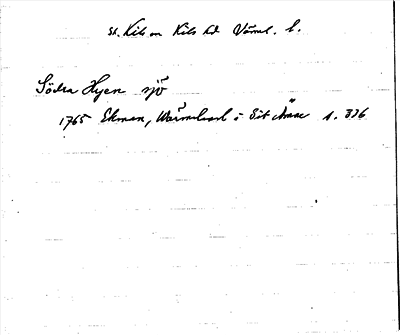 St. Kils sn Kils hd Värml. l.
Södra Hyen sjö
1765 Ekman, Wärmeland i Sit Ämne s. 336